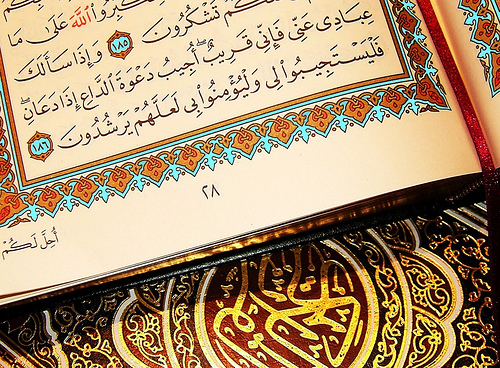 وَلِتُكَبِّرُوا۟ ٱللَّهَ عَلَىٰ مَا
كُمْ تَشْكُرُونَ ١٨٥ وَإِذَا سَأَلَكَ
عِبَادِى عَنِّى فَإِنِّى قَرِيبٌ ۖ أُجِيبُ دَعْوَةَ ٱلدَّاعِ إِذَا دَعَانِ ۖ
فَلْيَسْتَجِيبُوا۟ لِى وَلْيُؤْمِنُوا۟ بِى لَعَلَّهُمْ يَرْشُدُونَ ١٨٦
أُحِلَّ لَكُمْ
٢٨